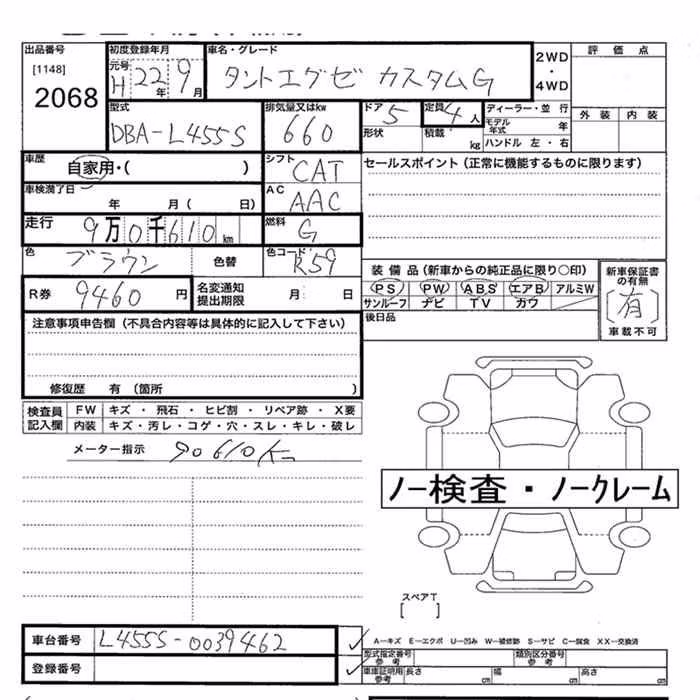 出品番号 初度登録年月 車名・グレード 2WD・4WD 評価点
[1148] 元号 H 22年 9月 タントエグゼ カスタムG
2068
型式 排気量又はkw ドア 5 定員 4人 ディーラー・並行 外装 内装
DBA-L455S 660 形状 積載 kg モデル年式 年
ハンドル 左・右
車歴 自家用・( ) シフト CAT セールスポイント(正常に機能するものに限ります)
車検満了日 年 月( 日) AC AAC
走行 9万0千610km 燃料 G
色 ブラウン 色替 色コード R59 装備品(新車からの純正品に限り○印) 新車保証書の有無
R券 9460円 名変通知提出期限 月 日 PS PW ABS エアB アルミW [有]
サンルーフ ナビ TV カワ 車載不可
注意事項申告欄(不具合内容等は具体的に記入して下さい) 後日品
修復歴 有(箇所 )
検査員記入欄 FW キズ・飛石・ヒビ割・リペア跡・X要
内装 キズ・汚レ・コゲ・穴・スレ・キレ・破レ
メーター指示 90610K
ノー検査・ノークレーム
スペアT
[ ]
車台番号 L455S-0039462 A-キズ E-エクボ U-凹み W-補修跡 S-サビ C-腐食 XX-交換済
型式指定番号 参考 類別区分番号 参考
登録番号 車庫証明用参考 長さ cm 幅 cm 高さ cm